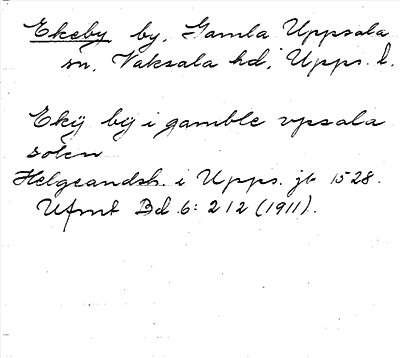 Ekeby by, Gamla Uppsala
sn, Vaksala hd, Upps. l.
Ekÿ bÿ i gamble vpsala
solen
Helgeandsh. i Upps. jb 1528.
Ufmt Bd 6: 212 (1911).